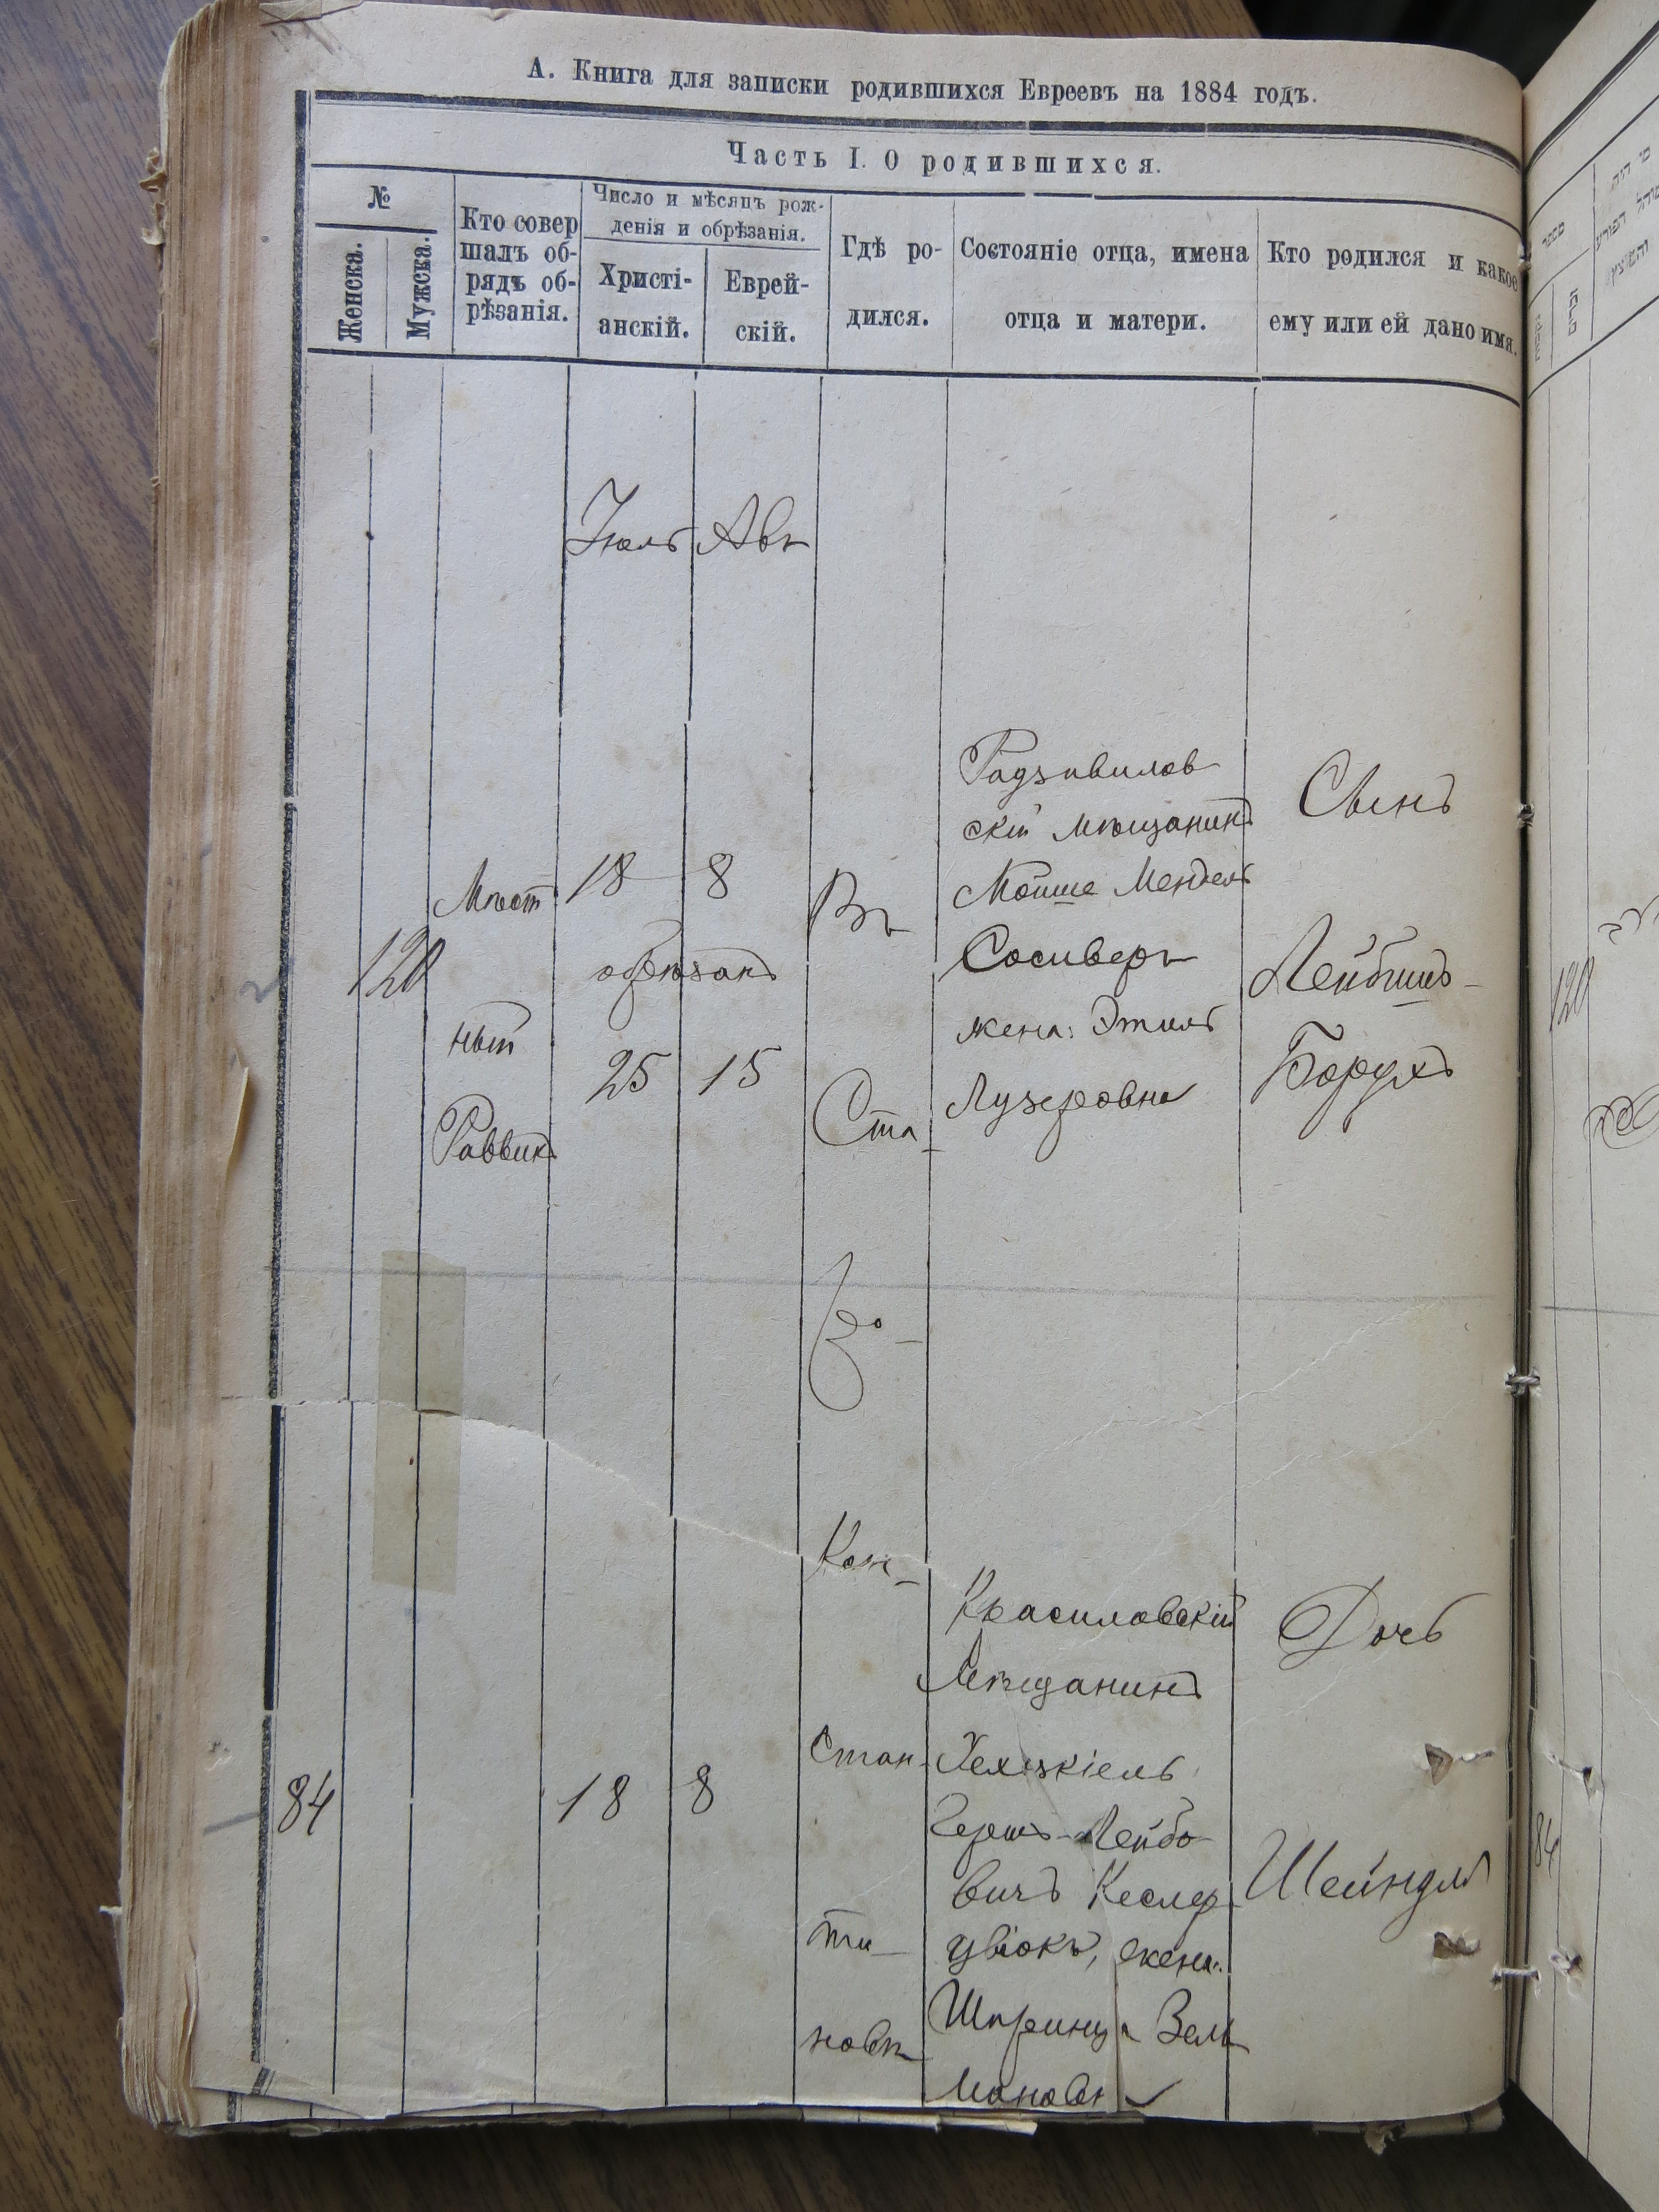 А. Книга для записки родившихся Евреевъ на 1884 годъ.
Часть I. О родившихся.
№
Женска.
Мужска.
Кто совер
шалъ об-
рядъ об-
рѣзанія.
Число и мѣсяцъ рож-
денія и обрѣзанія.
Христі-
анскій.
Еврей-
скій.
Гдѣ ро-
дился.
Состояніе отца, имена
отца и матери.
Кто родился и какое
ему или ей дано имя.
Іюль
Авъ
120
Мѣст
ный
Раввинъ
18
8
обрѣзанъ
25
15
Въ
Ста
ро-
Кон-
стан-
ти-
новѣ
Радзивилов
скій мѣщанинъ
Мойше Мендель
Сосиверъ
жена: Этиль
Лузеровна
Сынъ
Лейбишъ-
Борухъ
84
18
8
Красиловскій
Мѣщанинъ
Хехезкіель
Гершъ-Лейбо-
вичъ Кеслер
цвіокъ, жена:
Шпринца Зель
мановна
Дочь
Шейндля
120
84